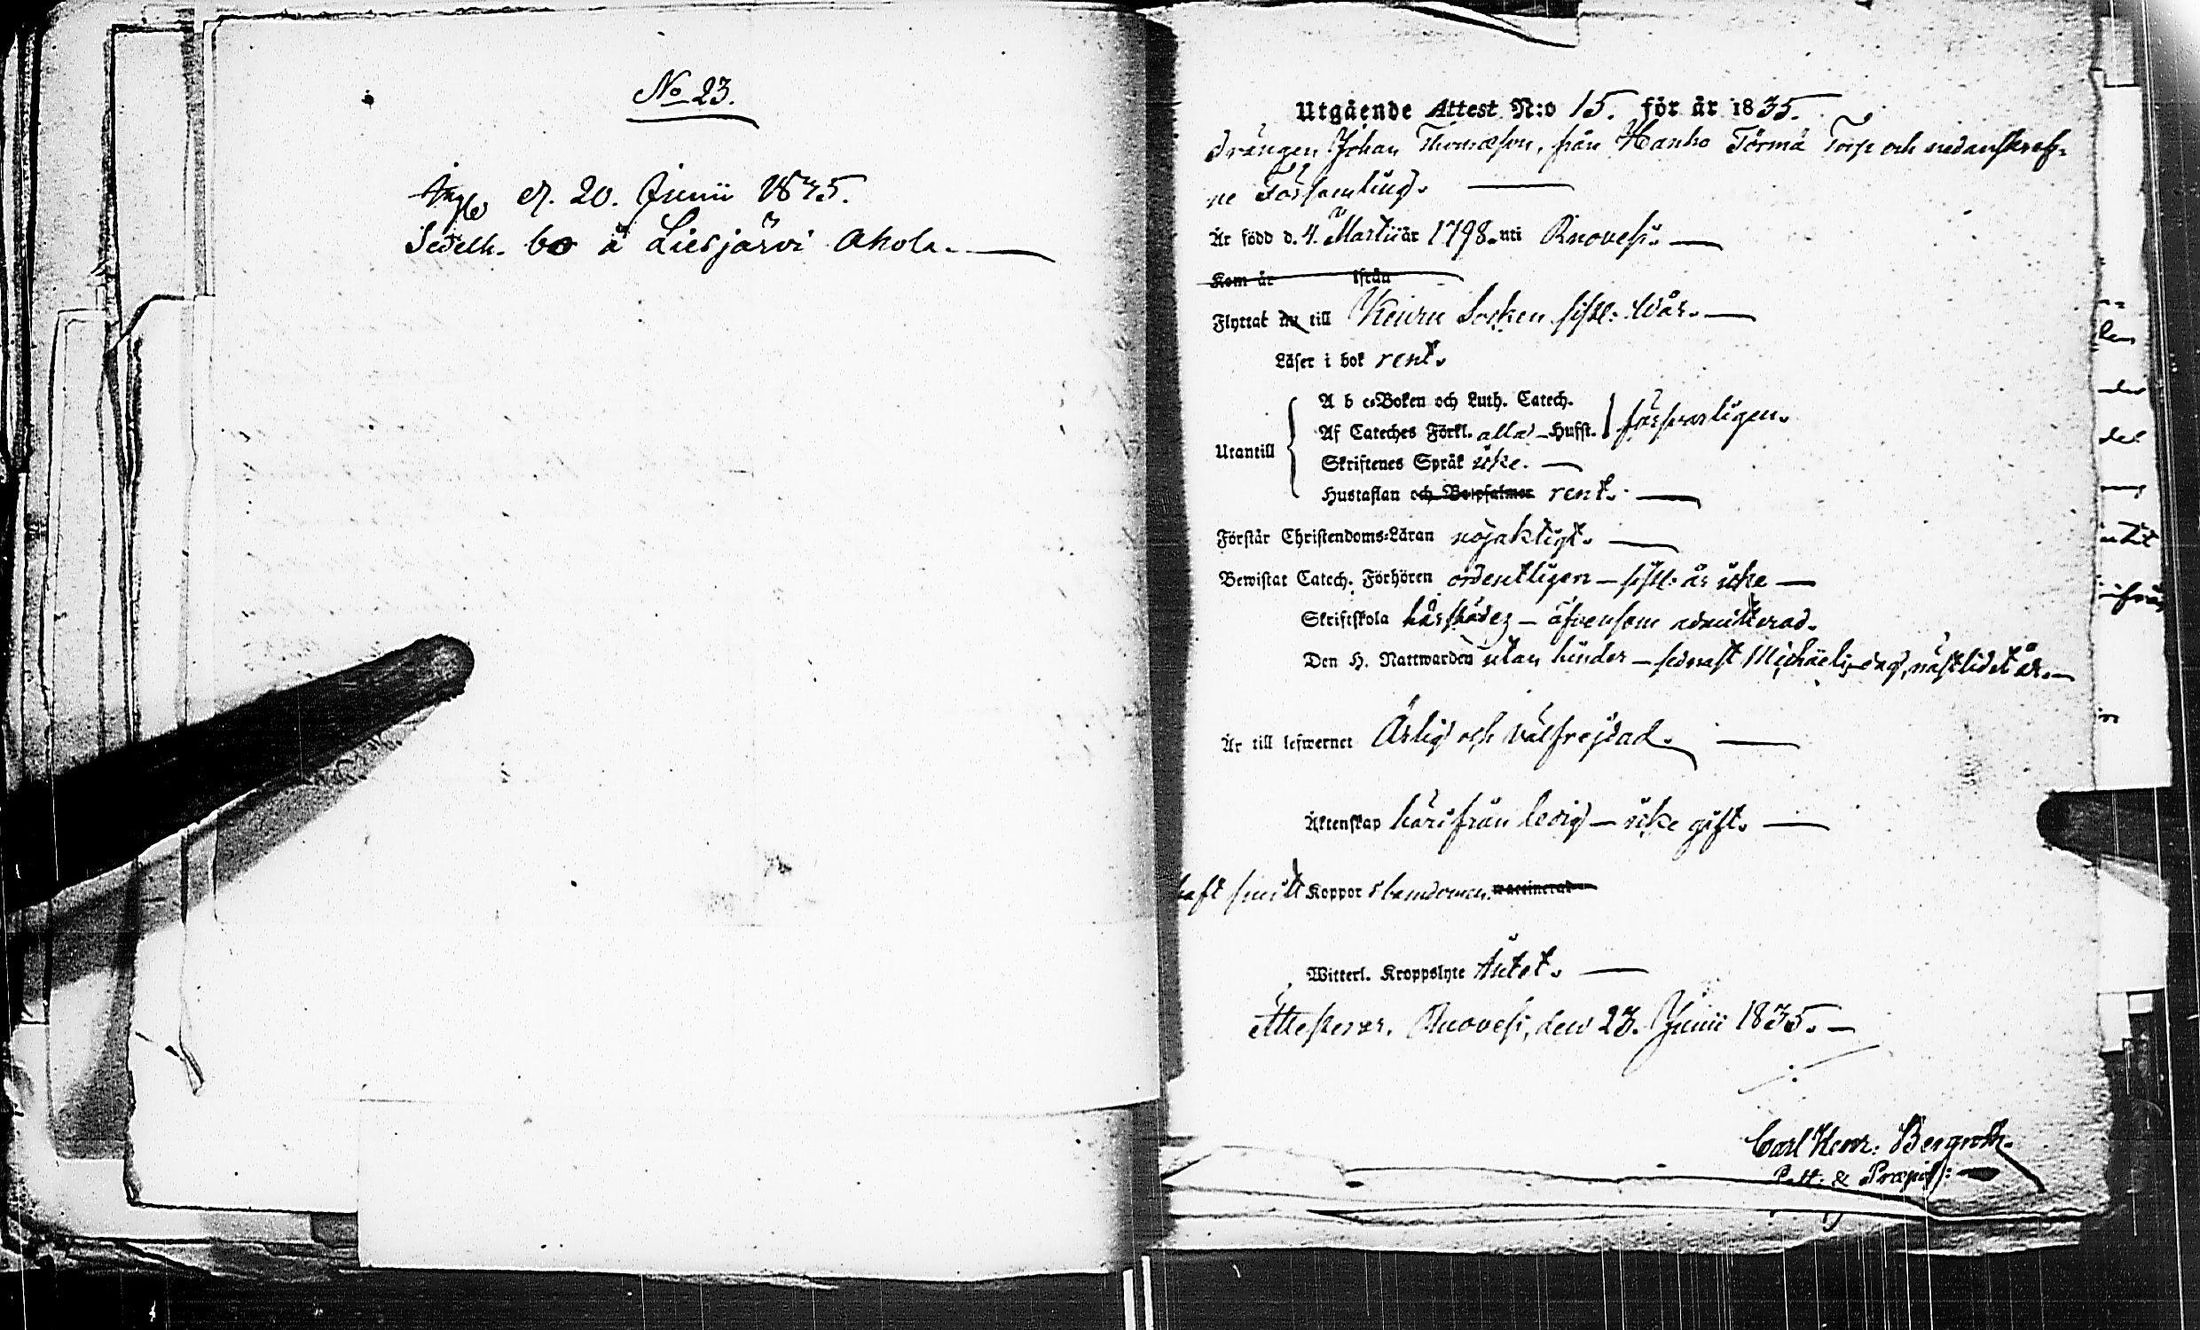 No 23.
d. 20. Junii 1835.
Sedelh. bo å Liesjärvi Ahola.
Utgående Attest N:o 15. för år 1835.
Drängen Johan Thomasson, från Hanho Törmä Torp och nedanskref-
ne Församling.
Är född d. 4. Martii år 1798. uti Ruovesi.
Kom år ifrån
Flyttat nu till Keuru Socken sistl: Wår.
Läser i bok rent.
A b c-Boken och Luth. Catech.
Af Cateches Förkl. alla Husst. försvarligen.
Utantill
Skriftenes Språk icke.
Hustaflan och Botpsalmer rent.
Förstår Christendoms-Läran nöjaktigt.
Bewistat Catech. Förhören ordentligen – sistl: år icke –
Skriftskola härstädes – äfvensom admitterad.
Den H. Nattwarden utan hinder – sednast Michäelis dag, nästlidet år.
Är till lefwernet Ärlig och välfrejdad.
Äktenskap härifrån ledig – icke gift.
haft Koppor i barndomen. vaccinerad
Witterl. Kroppslyte intet.
Attesterar. Ruovesi, den 23. Junii 1835.
Carl Henr: Bergroth.
P. H. & Præposit: